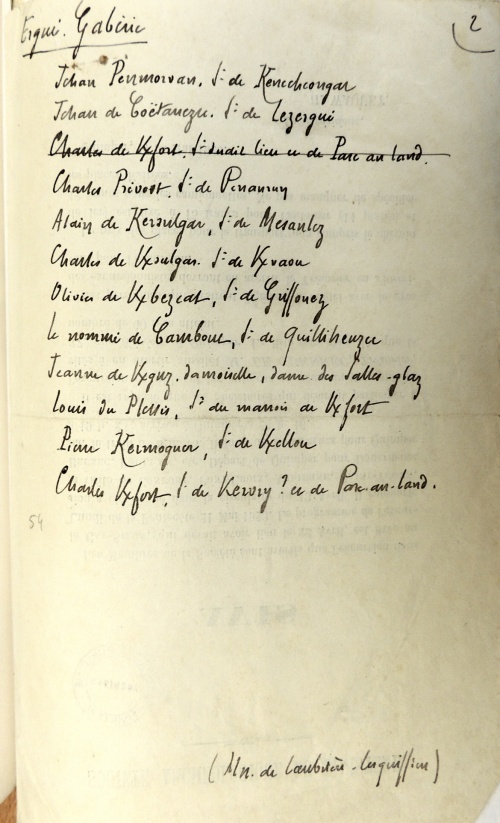 Ergué. Gabéric
2
Jehan Penmorvan, Sr de Kenechcongar
Jehan de Coëtanezre. Sr de Lezergué
Charles de Kxfort. Sr dudit lieu et de Parc an land.
Charles Prévost. Sr de Penanrun
Alain de Keroulgar, Sr de Mesanlez
Charles de Kxoulgar. Sr de Kxvaou
Olivier de Kxbezcat, Sr de Griffonez
le nommé de Cambout, Sr de Quilliheuzec
Jeanne de Kxguz. damoiselle, dame des Salles-glaz
Louis du Plessis, Sr du manoir de Kxfort
Pierre Kermoguer, Sr de Kxellou
Charles Kxfort, Sr de Kervry ? et de Parc-an-land.
54
(Mss. de Laubrière - Lesquiffiou)